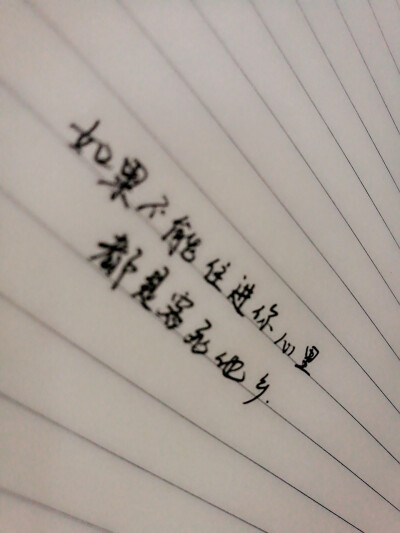 如果不能住进你心里
都是客死他乡.